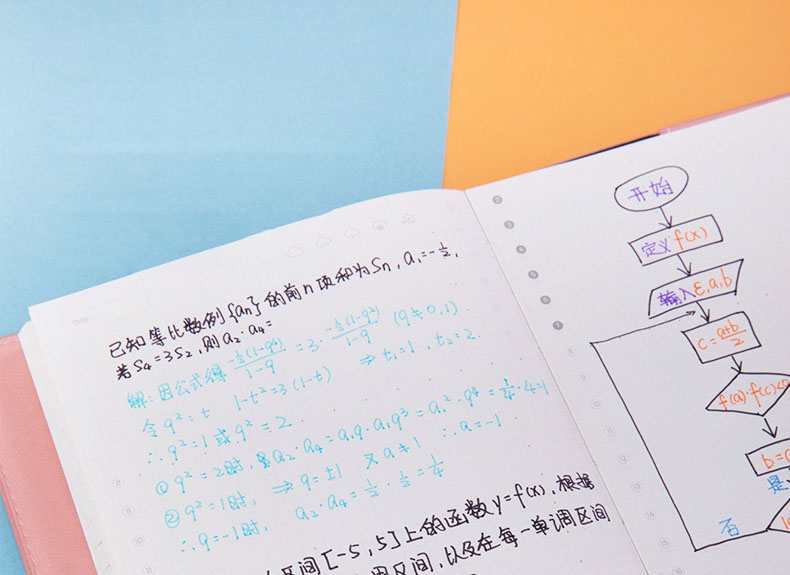 已知等比数例{an}的前n项和为Sn,a₁=-½,
若S₄=3S₂,则a₂·a₄=
解:因公式得 -½(1-q⁴)/1-q =3· -½(1-q²)/1-q (q≠0,1)
令q²=t 1-t²=3(1-t) ⇒ t₁=1,t₂=2.
∴q²=1或q²=2
① q²=2时, a₂·a₄=a₁q·a₁q³=a₁²·q⁴=¼·4=1
② q²=1时, ⇒ q=±1 又a≠1 ∴a=-1
∴q=-1时, a₂·a₄=½·½=¼
区间[-5,5]上的函数y=f(x),根据
区间,以及在每一单调区间
开始
定义f(x)
输入ε,a,b
c=a+b/2
f(a)·f(c)<
b=
是
否